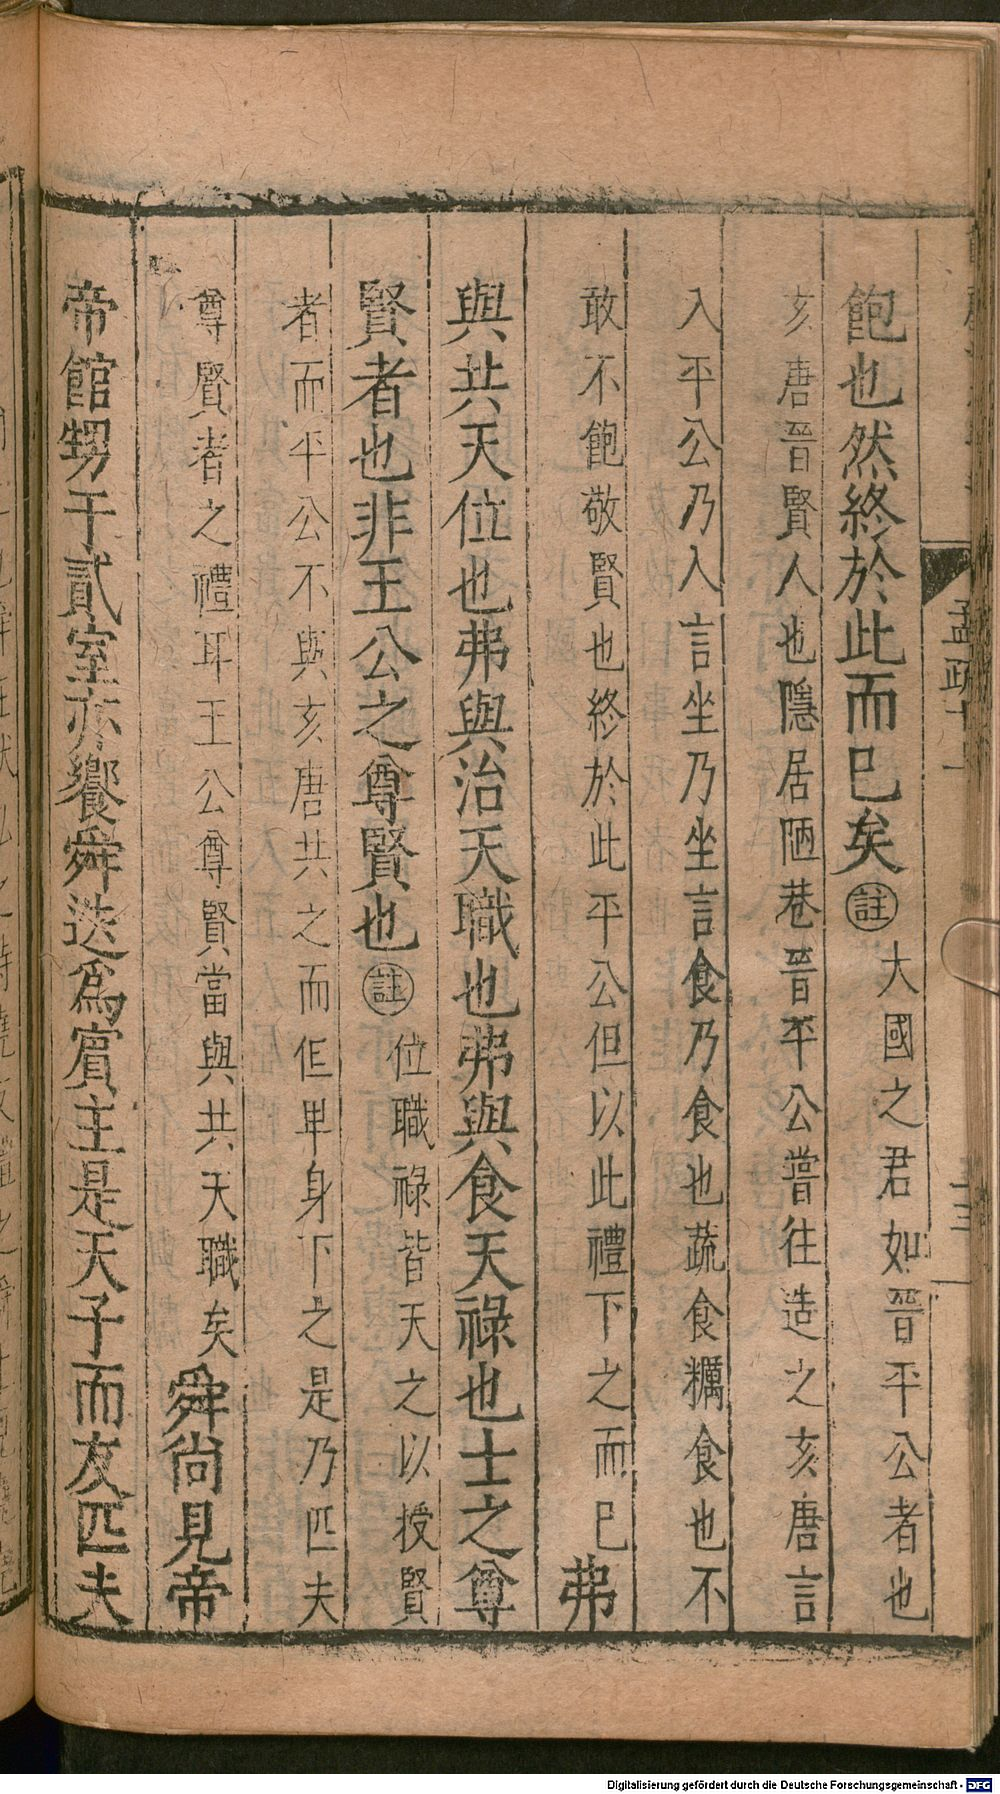 飽也然終於此而已矣㊟大國之君如晉平公者也
亥唐晉賢人也隱居陋巷晉平公嘗往造之亥唐言
入平公乃入言坐乃坐言食乃食也蔬食糲食也不
敢不飽敬賢也終於此平公但以此禮下之而已弗
與共天位也弗與治天職也弗與食天祿也士之尊
賢者也非王公之尊賢也㊟位職祿皆天之以授賢
者而平公不與亥唐共之而但卑身下之是乃匹夫
尊賢者之禮耳王公尊賢當與共天職矣舜尚見帝
帝館甥于貳室亦饗舜迭爲賓主是天子而友匹夫
孟疏十上
Digitalisierung gefördert durch die Deutsche Forschungsgemeinschaft - DFG